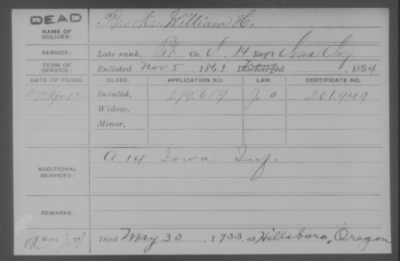 DEAD
NAME OF SOLDIER: William H.
SERVICE: Late rank, Co. I, 14 Reg't
TERM OF SERVICE: Enlisted Nov 5, 1861 Discharged 1864
DATE OF FILING. CLASS. APPLICATION NO. LAW. CERTIFICATE NO.
Invalid, 279.659 201949
Widow,
Minor,
ADDITIONAL SERVICES: A 14 Iowa Inf.
REMARKS:
Died May 30, 1933, at Hillsboro, Oregon